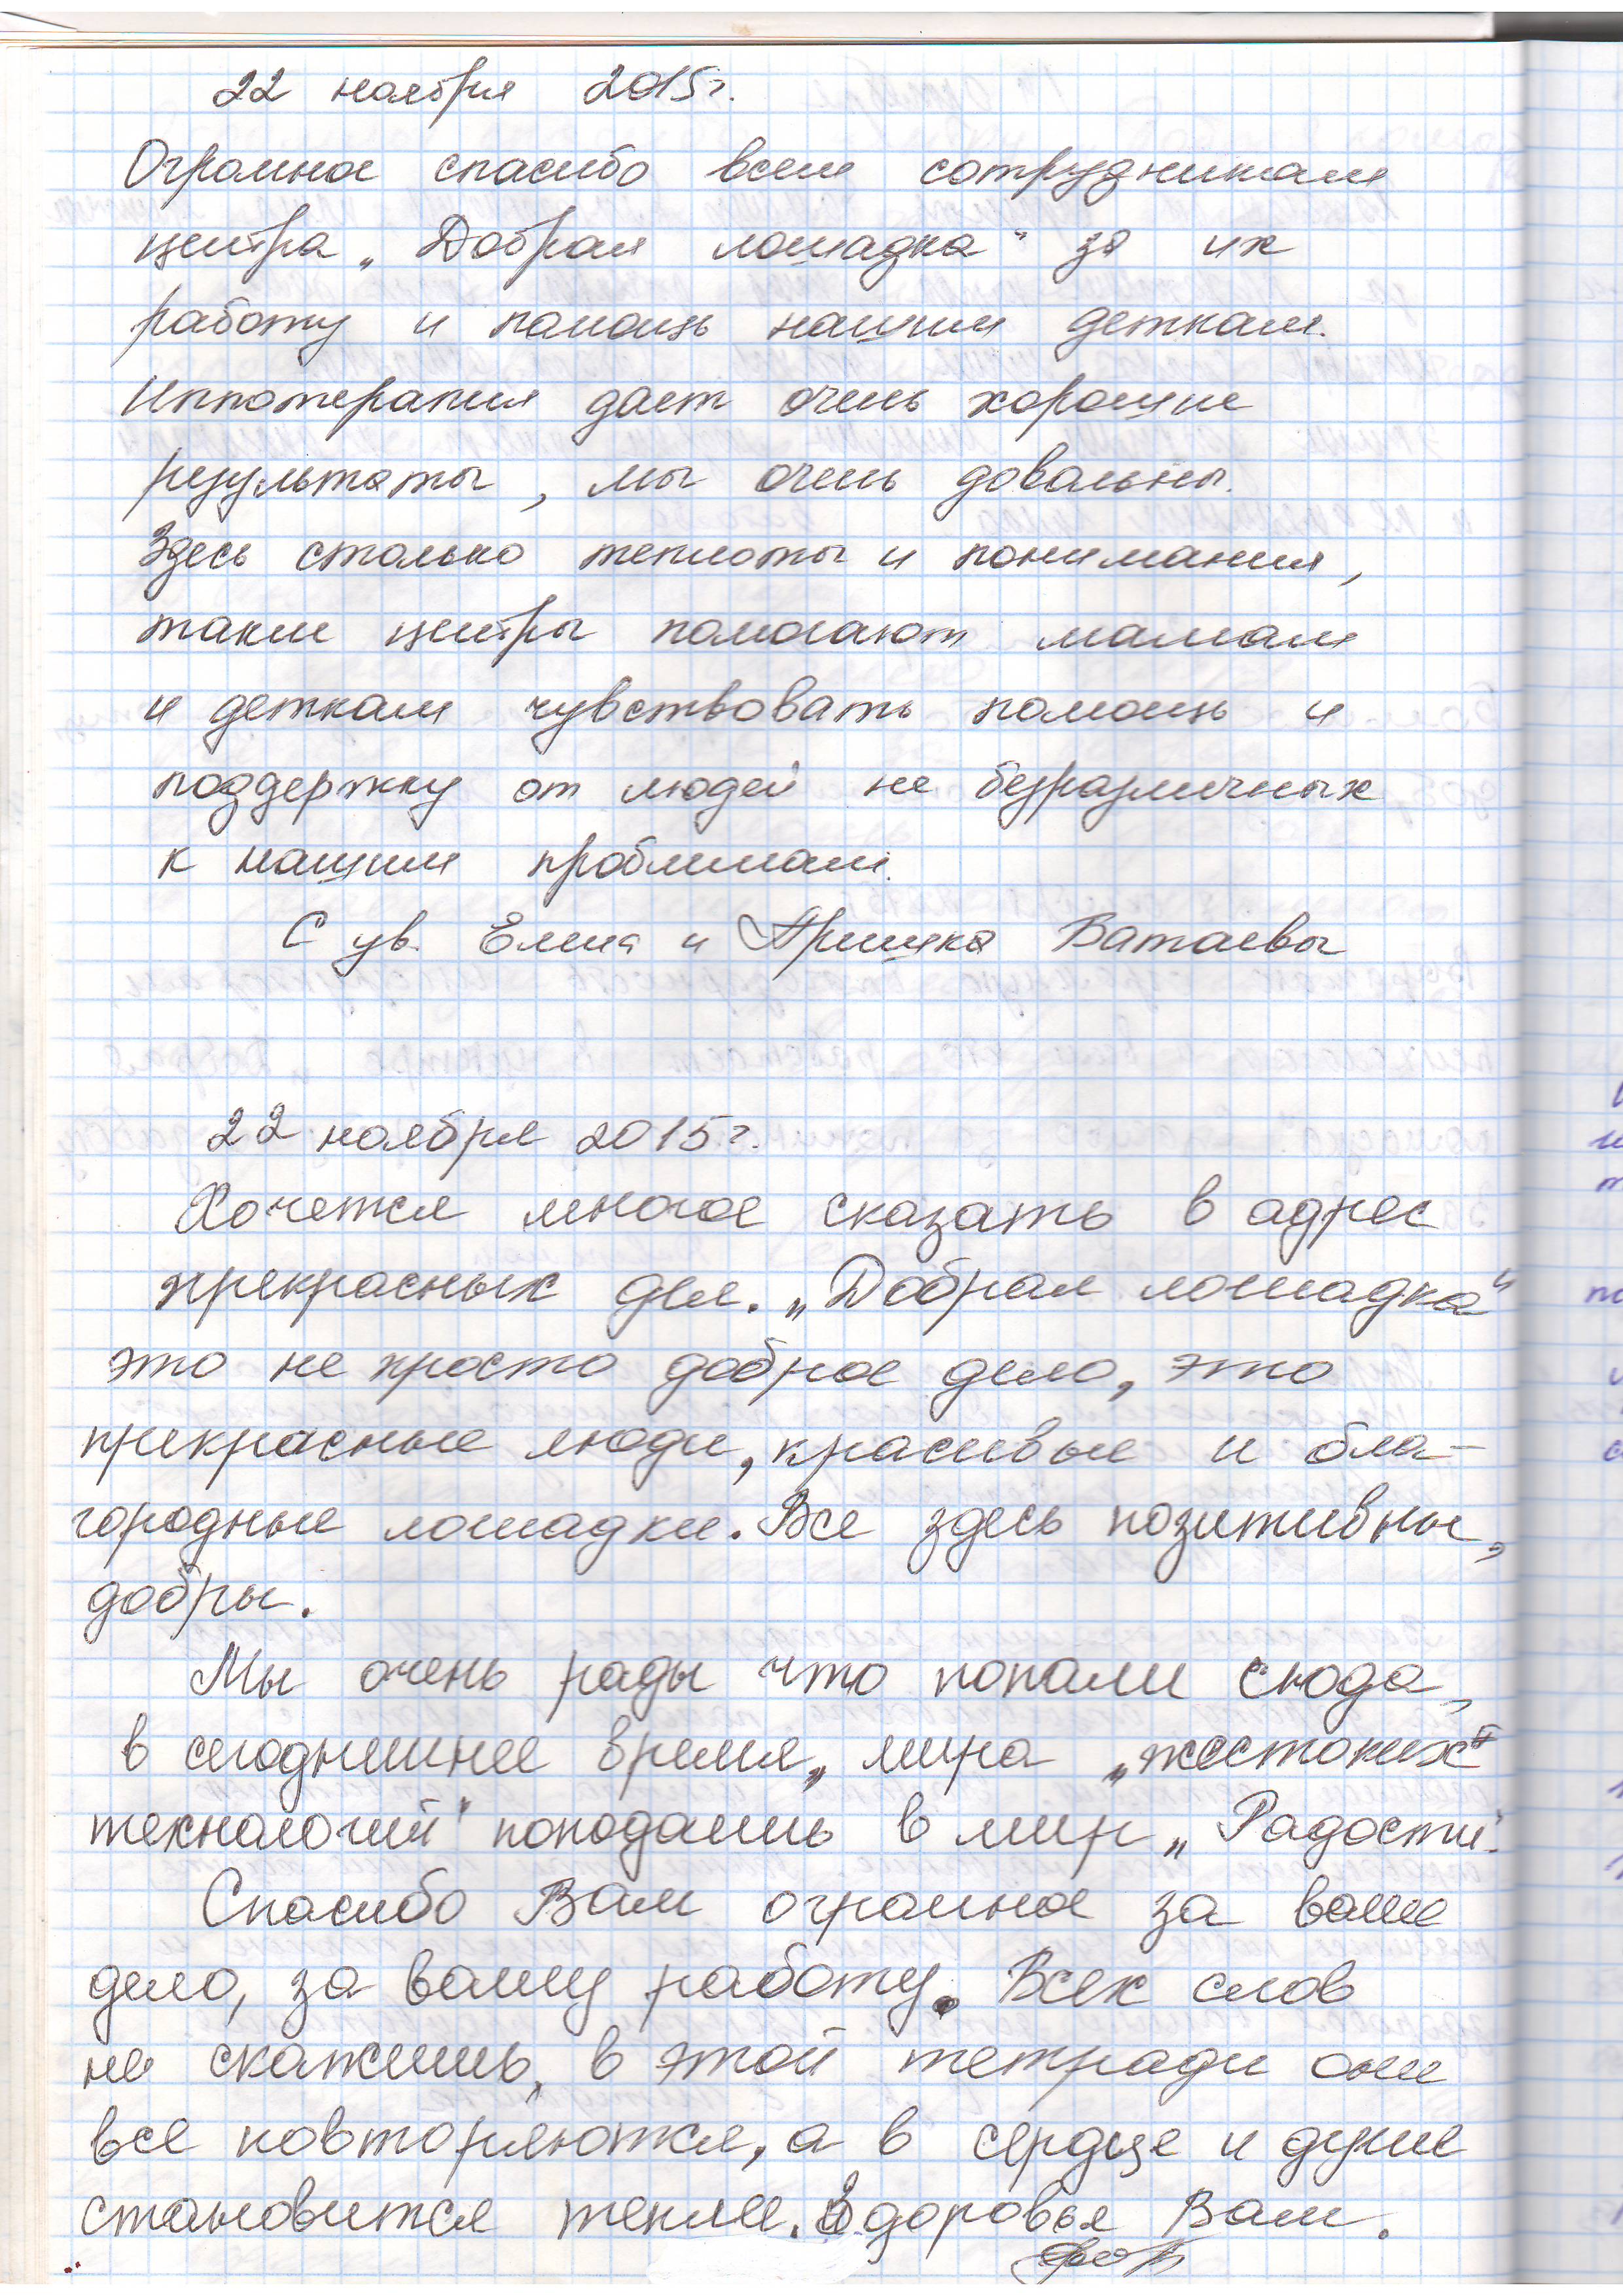 22 ноября 2015г.
Огромное спасибо всем сотрудникам
центра „Добрая лошадка" за их
работу и помощь нашим деткам.
Иппотерапия дает очень хорошие
результаты, мы очень довольны.
Здесь столько теплоты и понимания,
такие центры помогают мамам
и деткам чувствовать помощь и
поддержку от людей не безразличных
к нашим проблемам.
С ув. Елена и Аришка Ватаевы
22 ноября 2015г.
Хочется многое сказать в адрес
прекрасных дел. „Добрая лошадка"
это не просто доброе дело, это
прекрасные люди, красивые и бла-
городные лошадки. Все здесь позитивны,
добры.
Мы очень рады что попали сюда,
в сегоднешнее время, мира „жестоких"
технологий" поподаешь в мир „Радости".
Спасибо Вам огромное за ваше
дело, за вашу работу. Всех слов
не скажешь, в этой тетради они
все повторяются, а в сердце и душе
становится теплее. Здоровья Вам.